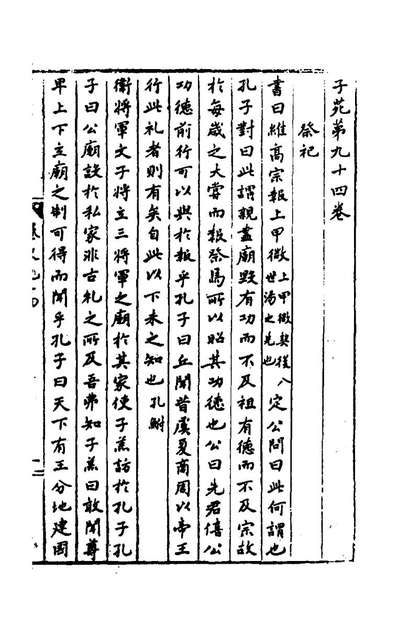 子苑第九十四卷
祭祀
書曰維高宗報上甲微上甲微契後八世湯之先也定公問曰此何謂也
孔子對曰此謂親盡廟毀有功而不及祖有德而不及宗故
於每歲之大嘗而報祭焉所以昭其功德也公曰先君僖公
功德前行可以與於報乎孔子曰丘聞昔虞夏商周以帝王
行此礼者則有矣自此以下未之知也孔鮒
衛將軍文子將立三將軍之廟於其家使子羔訪於孔子孔
子曰公廟設於私家非古礼之所及吾弗知子羔曰敢聞尊
卑上下立廟之制可得而聞乎孔子曰天下有王分地建國